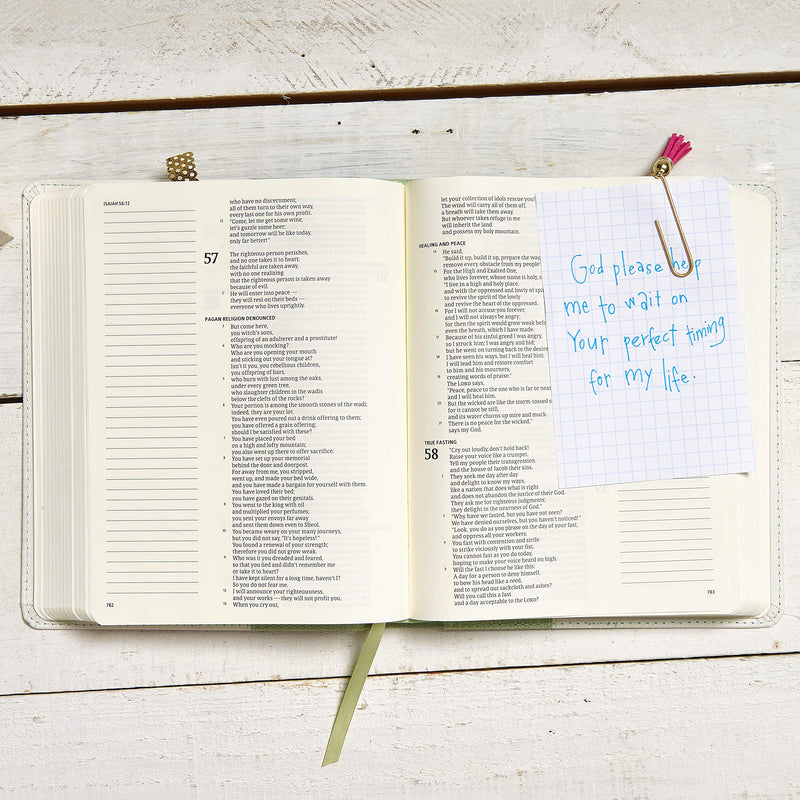 ISAIAH 56:12
who have no discernment;
all of them turn to their own way,
every last one for his own profit.
12 "Come, let me get some wine,
let's guzzle some beer;
and tomorrow will be like today,
only far better!"
57 The righteous person perishes,
and no one takes it to heart;
the faithful are taken away,
with no one realizing
that the righteous person is taken away
because of evil.
2 He will enter into peace —
they will rest on their beds —
everyone who lives uprightly.
PAGAN RELIGION DENOUNCED
3 But come here,
you witch's sons,
offspring of an adulterer and a prostitute!
4 Who are you mocking?
Who are you opening your mouth
and sticking out your tongue at?
Isn't it you, you rebellious children,
you offspring of liars,
5 who burn with lust among the oaks,
under every green tree,
who slaughter children in the wadis
below the clefts of the rocks?
6 Your portion is among the smooth stones of the wadi;
indeed, they are your lot.
You have even poured out a drink offering to them;
you have offered a grain offering;
should I be satisfied with these?
7 You have placed your bed
on a high and lofty mountain;
you also went up there to offer sacrifice.
8 You have set up your memorial
behind the door and doorpost.
For away from me, you stripped,
went up, and made your bed wide,
and you have made a bargain for yourself with them.
You have loved their bed;
you have gazed on their genitals.
9 You went to the king with oil
and multiplied your perfumes;
you sent your envoys far away
and sent them down even to Sheol.
10 You became weary on your many journeys,
but you did not say, "It's hopeless!"
You found a renewal of your strength;
therefore you did not grow weak.
11 Who was it you dreaded and feared,
so that you lied and didn't remember me
or take it to heart?
I have kept silent for a long time, haven't I?
So you do not fear me.
12 I will announce your righteousness,
and your works — they will not profit you.
13 When you cry out,
782
let your collection of idols rescue you!
The wind will carry all of them off,
a breath will take them away.
But whoever takes refuge in me
will inherit the land
and possess my holy mountain.
HEALING AND PEACE
14 He said,
"Build it up, build it up, prepare the way,
remove every obstacle from my people's
15 For the High and Exalted One,
who lives forever, whose name is holy, s
"I live in a high and holy place,
and with the oppressed and lowly of spi
to revive the spirit of the lowly
and revive the heart of the oppressed.
16 For I will not accuse you forever,
and I will not always be angry;
for then the spirit would grow weak befo
even the breath, which I have made.
17 Because of his sinful greed I was angry,
so I struck him; I was angry and hid;
but he went on turning back to the desire
18 I have seen his ways, but I will heal him;
I will lead him and restore comfort
to him and his mourners,
19 creating words of praise."
The LORD says,
"Peace, peace to the one who is far or near
and I will heal him.
20 But the wicked are like the storm-tossed s
for it cannot be still,
and its waters churn up mire and muck.
21 There is no peace for the wicked,"
says my God.
TRUE FASTING
58 "Cry out loudly, don't hold back!
Raise your voice like a trumpet.
Tell my people their transgression
and the house of Jacob their sins.
2 They seek me day after day
and delight to know my ways,
like a nation that does what is right
and does not abandon the justice of their God.
They ask me for righteous judgments;
they delight in the nearness of God."
3 "Why have we fasted, but you have not seen?
We have denied ourselves, but you haven't noticed!"
"Look, you do as you please on the day of your fast,
and oppress all your workers.
4 You fast with contention and strife
to strike viciously with your fist.
You cannot fast as you do today,
hoping to make your voice heard on high.
5 Will the fast I choose be like this:
A day for a person to deny himself,
to bow his head like a reed,
and to spread out sackcloth and ashes?
Will you call this a fast
and a day acceptable to the LORD?
783
God please help
me to wait on
Your perfect timing
for my life.